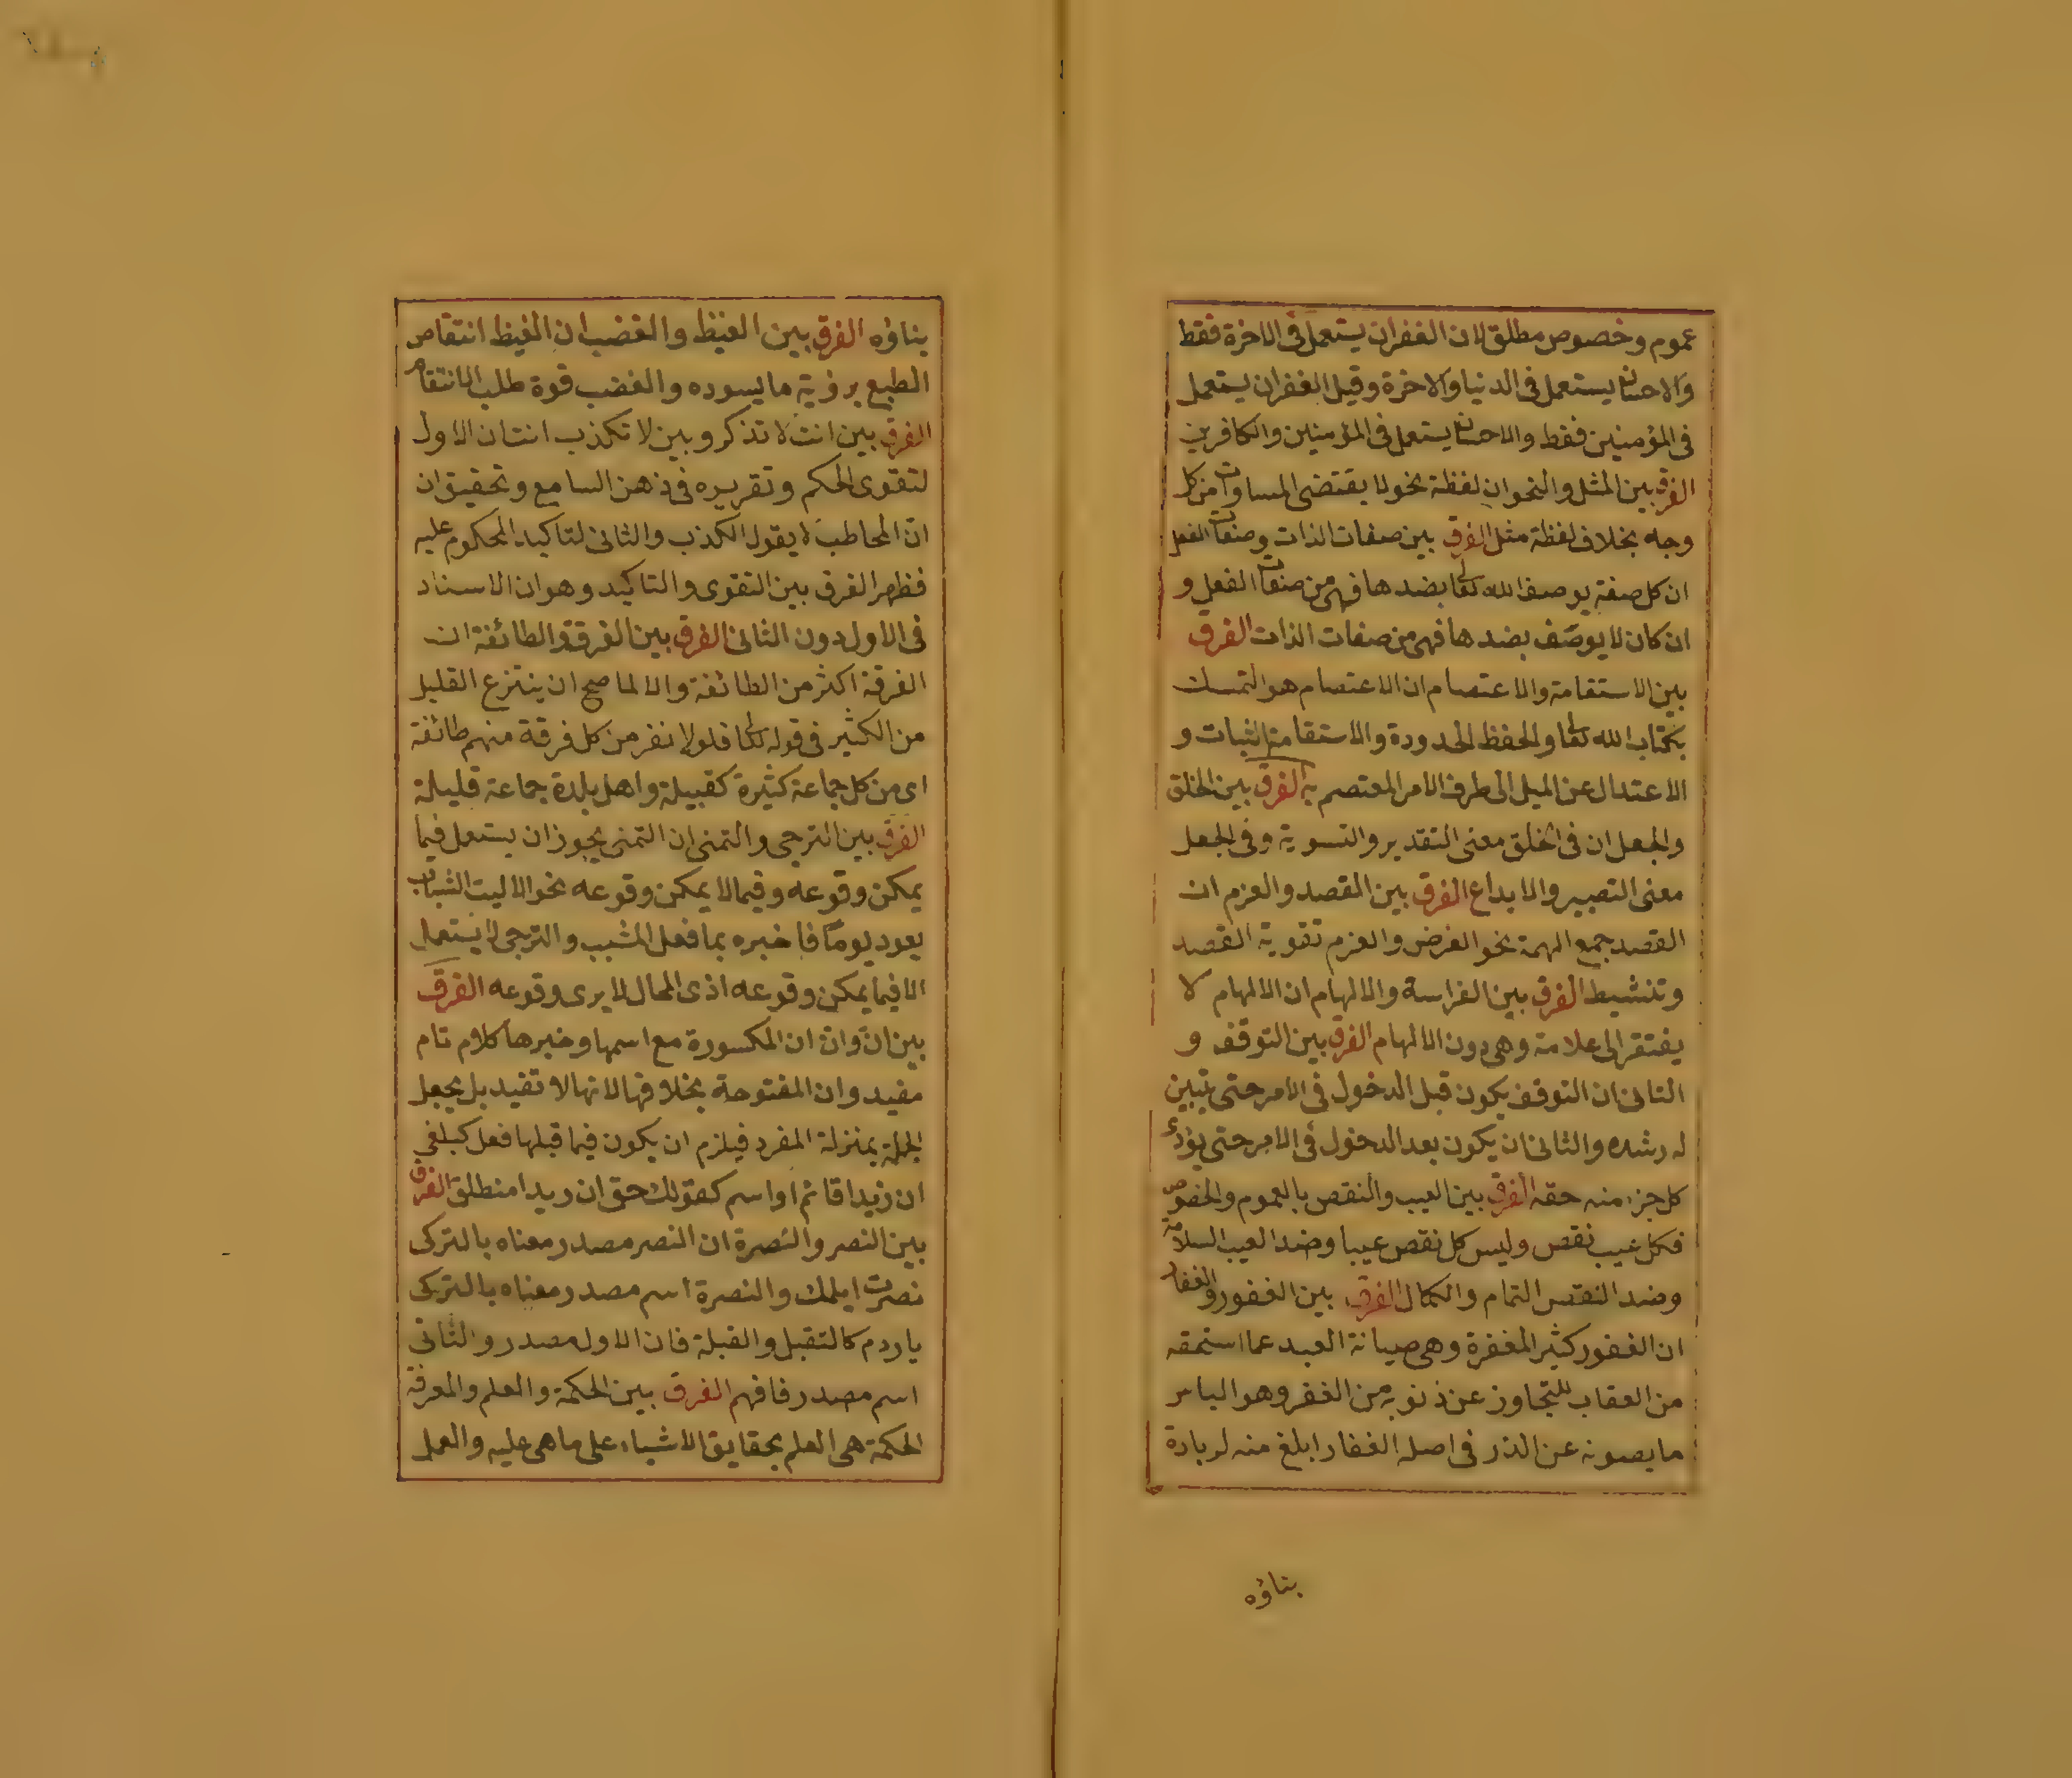 عموم وخصوص مطلق لان الغفران يستعمل فى الاخرة فقط
والاحسان يستعمل فى الدنيا والاخرة وقيل الغفران يستعمل
فى المؤمنين فقط والاحسان يستعمل فى المؤمنين والكافرين
الفرق بين المثل والنحو ان لفظة نحو لا يقتضى المساوات من كل
وجه بخلاف لفظة مثل الفرق بين صفات الذات وصفات الفعل
ان كل صفة يوصف الله تعا بضدها فهى من صفات الفعل و
ان كان لا يوصف بضدها فهى من صفات الذات الفرق
بين الاستقامة والاعتصام ان الاعتصام هو التمسك
بكتاب الله تعا والحفظ لحدوده والاستقامة الثبات و
الاعتدال عن الميل الى طرف الامر المعتصم به الفرق بين الخلق
والجعل ان فى الخلق معنى التقدير والتسوية وفى الجعل
معنى التصيير والابداع الفرق بين القصد والعزم ان
القصد جمع الهمة نحو الغرض والعزم تقوية القصد
وتنشيط الفرق بين الفراسة والالهام ان الالهام لا
يفتقر الى علامة وهى دون الالهام الفرق بين التوقف و
التانى ان التوقف يكون قبل الدخول فى الامر حتى تبين
له رشده والثانى ان يكون بعد الدخول فى الامر حتى يؤدى
كل جزء منه حقه الفرق بين العيب والنقص بالعموم والخصوص
فكل عيب نقص وليس كل نقص عيبا وضد العيب السلامة
وضد النقص التمام والكمال الفرق بين الغفور والغفار
ان الغفور كثير المغفرة وهى صيانة العبد عما استحقه
من العقاب للتجاوز عن ذنوبه من الغفر وهو الباس
ما يصونه عن الدر فى اصله الغفار ابلغ منه لزيادة
بناؤه
بناؤه الفرق بين الغيظ والغضب ان الغيظ انتقاص
الطبع برؤية ما يسوده والغضب قوة طلب الانتقام
الفرق بين انت لا تذكر وبين لا تكذب انت ان الاول
لتقوى الحكم وتقريره فى ذهن السامع وتحقيق ان
ان المخاطب لا يقول الكذب والثانى لتاكيد المحكوم عليه
فظهر الفرق بين التقوى والتاكيد وهو ان الاسناد
فى الاول دون الثانى الفرق بين الفرقة والطائفة ان
الفرقة اكثر من الطائفة والا لما صح ان ينتزع القليل
من الكثير فى قوله تعا فلولا نفر من كل فرقة منهم طائفة
اى من كل جماعة كثيرة كقبيلة واهل بلدة جماعة قليلة
الفرق بين الترجى والتمنى ان التمنى يجوز ان يستعمل فيما
يمكن وقوعه وفيما لا يمكن وقوعه نحو الا ليت الشباب
يعود يوما فاخبره بما فعل المشيب والترجى لا يستعمل
الا فيما يمكن وقوعه اذى المحال لا يرى وقوعه الفرق
بين ان وان ان المكسورة مع اسمها وخبرها كلام تام
مفيد وان المفتوحة بخلافها لانها لا تفيد بل يجعل
الجملة بمنزلة المفرد فيلزم ان يكون فيما قبلها فعل كبلغنى
ان زيدا قائم او اسم كقولك حق ان زيدا منطلق الفرق
بين النصر والنصرة ان النصر مصدر معناه بالتركى
نصرت ايلمك والنصرة اسم مصدر معناه بالتركى
ياردم كالتقبل والقبلة فان الاول مصدر والثانى
اسم مصدر فافهم الفرق بين الحكمة والعلم والمعرفة
الحكمة هى العلم بحقايق الاشياء على ما هى عليه والعمل